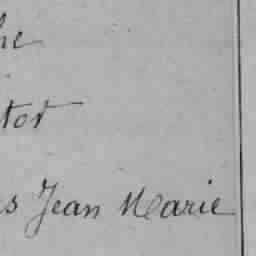 he
tor
s Jean Marie